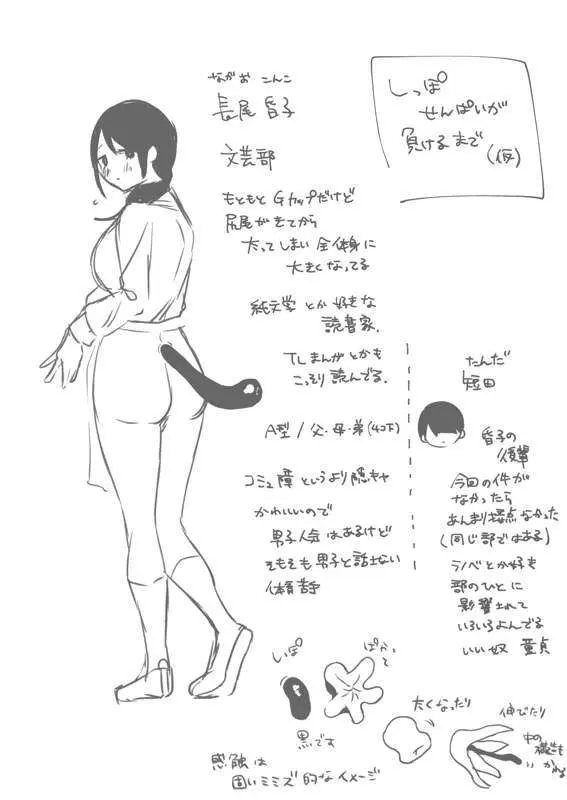 しっぽ
せんぱいが
負けるまで
(仮)
ながお こんこ
長尾 昏子
文芸部
もともと Gカップだけど
尻尾がきてから
太ってしまい 全体身に
大きくなってる
純文学とか好きな
読書家.
TLまんがとかも
こっそり読んでる.
A型 / 父・母・弟(4コ下)
コミュ障というより陰キャ
かわいいので
男子人気はあるけど
そもそも男子と話さない
体育苦手
たんだ
短田
昏子の
後輩
今回の件が
なかったら
あんまり接点なかった
(同じ部ではある)
ラノベとか好き
部のひとに
影響されて
いろいろよんでる
いい奴 童貞
しっぽ
ぱかって
黒です
太くなったり
伸びたり
中の
構造も
かわる
感触は
固いミミズ的なイメージ